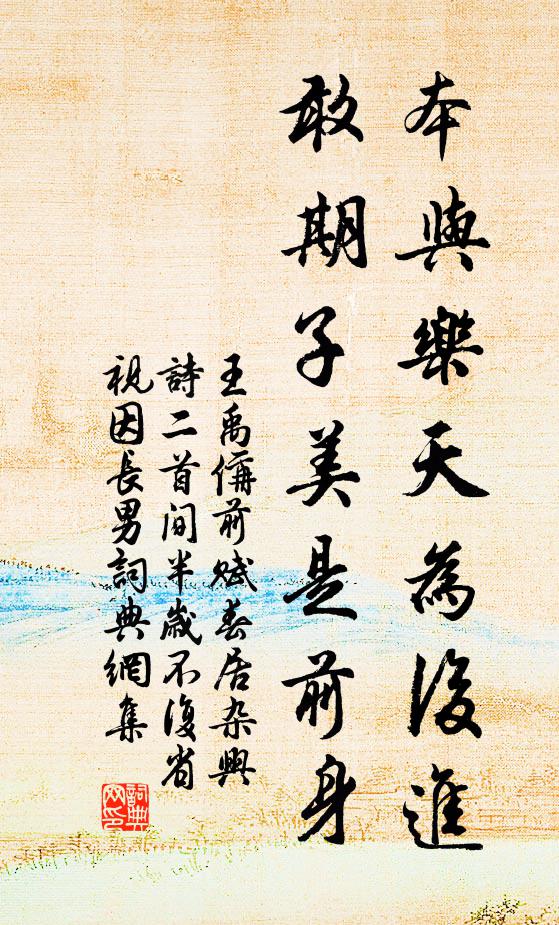 本與樂天為後進
敢期子美是前身
王禹偁前賦春居杂興
詩二首间半歲不復省
視因長男詞典網集
詞典
网印